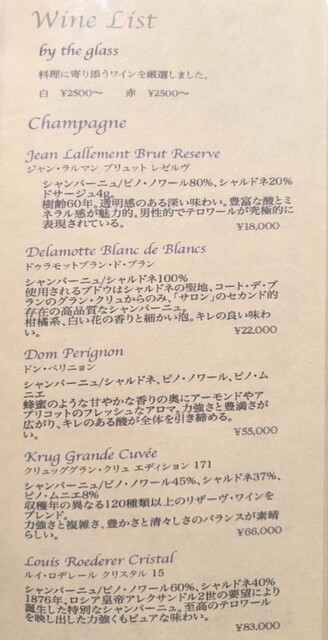 Wine List
by the glass
料理に寄り添うワインを厳選しました。
白 ¥2500～ 赤 ¥2500～
Champagne
Jean Lallement Brut Reserve
ジャン・ラルマン ブリュット レゼルヴ
シャンパーニュ/ピノ・ノワール80%、シャルドネ20%
ドサージュ4g
樹齢60年。透明感のある深い味わい。豊富な酸とミ
ネラル感が魅力的。男性的でテロワールが究極的に
表現されている。
¥18,000
Delamotte Blanc de Blancs
ドゥラモットブラン・ド・ブラン
シャンパーニュ/シャルドネ100%
使用されるブドウはシャルドネの聖地、コート・デ・ブ
ランのグラン・クリュからのみ、「サロン」のセカンド的
存在の高品質なシャンパーニュ。
柑橘系、白い花の香りと細かい泡。キレの良い味わ
い。
¥22,000
Dom Perignon
ドン・ペリニョン
シャンパーニュ/シャルドネ、ピノ・ノワール、ピノ・ム
ニエ
蜂蜜のような甘やかな香りの奥にアーモンドやア
プリコットのフレッシュなアロマ。力強さと豊満さが
広がり、キレのある酸が全体を引き締める。
い。
¥55,000
Krug Grande Cuvée
クリュッググラン・クリュ エディション 171
シャンパーニュ/ピノ・ノワール45%、シャルドネ37%、
ピノ・ムニエ8%
収穫年の異なる120種類以上のリザーヴ・ワインを
ブレンド。
力強さと複雑さ、豊かさと清々しさのバランスが素晴
らしい。
¥66,000
Louis Roederer Cristal
ルイ・ロデレール クリスタル 15
シャンパーニュ/ピノ・ノワール60%、シャルドネ40%
1876年、ロシア皇帝アレクサンドル2世の要望により
誕生した特別なシャンパーニュ。至高のテロワール
を映し出した力強くもピュアな味わい。
¥83,000